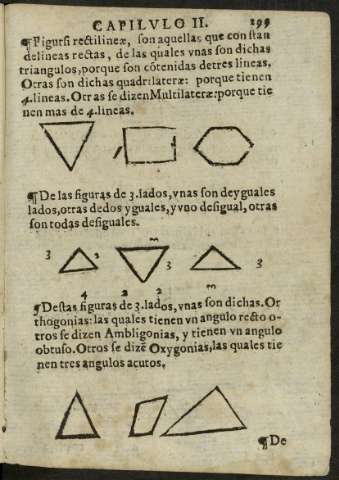 CAPILVLO II. 199
¶Figurs̄ rectilineæ, son aquellas que constan
delineas rectas, de las quales vnas son dichas
triangulos, porque son cõtenidas detres lineas.
Otras son dichas quadrılateræ: porque tienen
4. lineas. Otras se dizen Multilateræ: porque tie
nen mas de 4. lineas.
¶De las figuras de 3. lados, vnas son de yguales
lados, otras dedos yguales, y vno desigual, otras
son todas desiguales.
3 2 m 3 3
4 2 2 m
¶Destas figuras de 3. lados, vnas son dichas. Or
thogonias: las quales tienen vn angulo recto o-
tros se dizen Ambligonias, y tienen vn angulo
obtuso. Otros se dizẽ Oxygonias, las quales tie
nen tres angulos acutos.
¶De